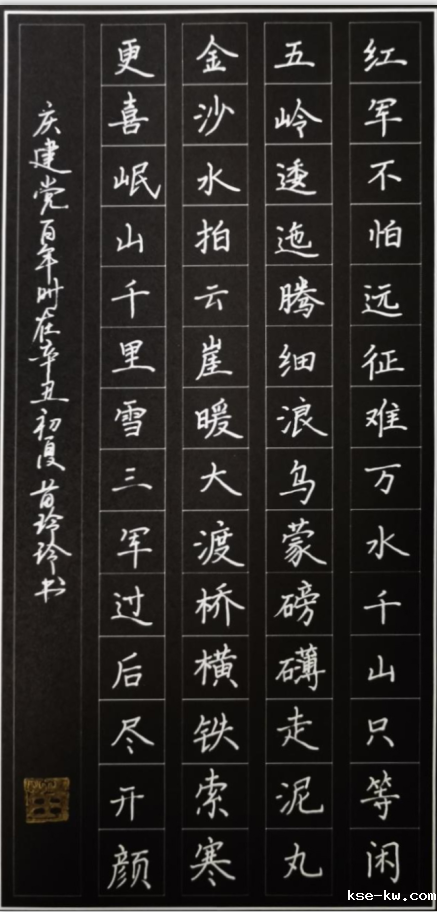 红军不怕远征难万水千山只等闲
五岭逶迤腾细浪乌蒙磅礴走泥丸
金沙水拍云崖暖大渡桥横铁索寒
更喜岷山千里雪三军过后尽开颜
庆建党百年时在辛丑初夏苗玲玲书
kse-kw.com